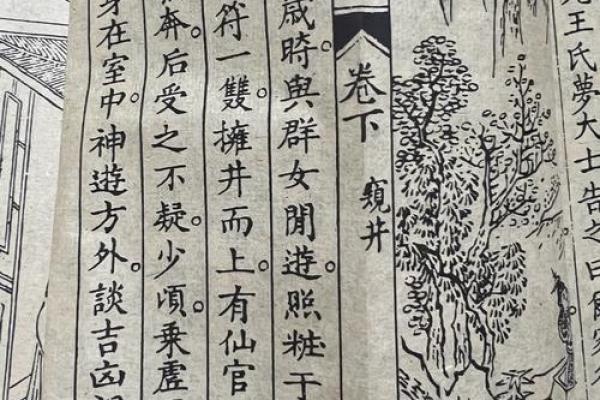 王氏夢大士告之曰
卷下 窺井
歲。時與群女閒遊。照粧于
符一雙。擁井而上。有仙官
奔。后受之不疑。少頃。乘虛
身在室中。神遊方外。談吉凶